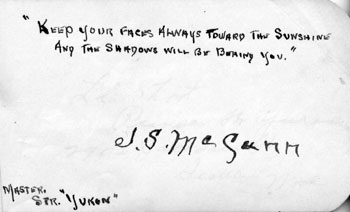 "KEEP YOUR FACES ALWAYS TOWARD THE SUNSHINE
AND THE SHADOWS WILL BE BEHIND YOU."
J.S. McGann
MASTER.
STR. "YUKON"